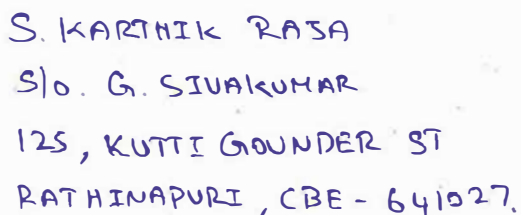 S. KARTHIK RAJA
S/o. G. SIVAKUMAR
125, KUTTI GOUNDER ST
RATHINAPURI, CBE - 641027.